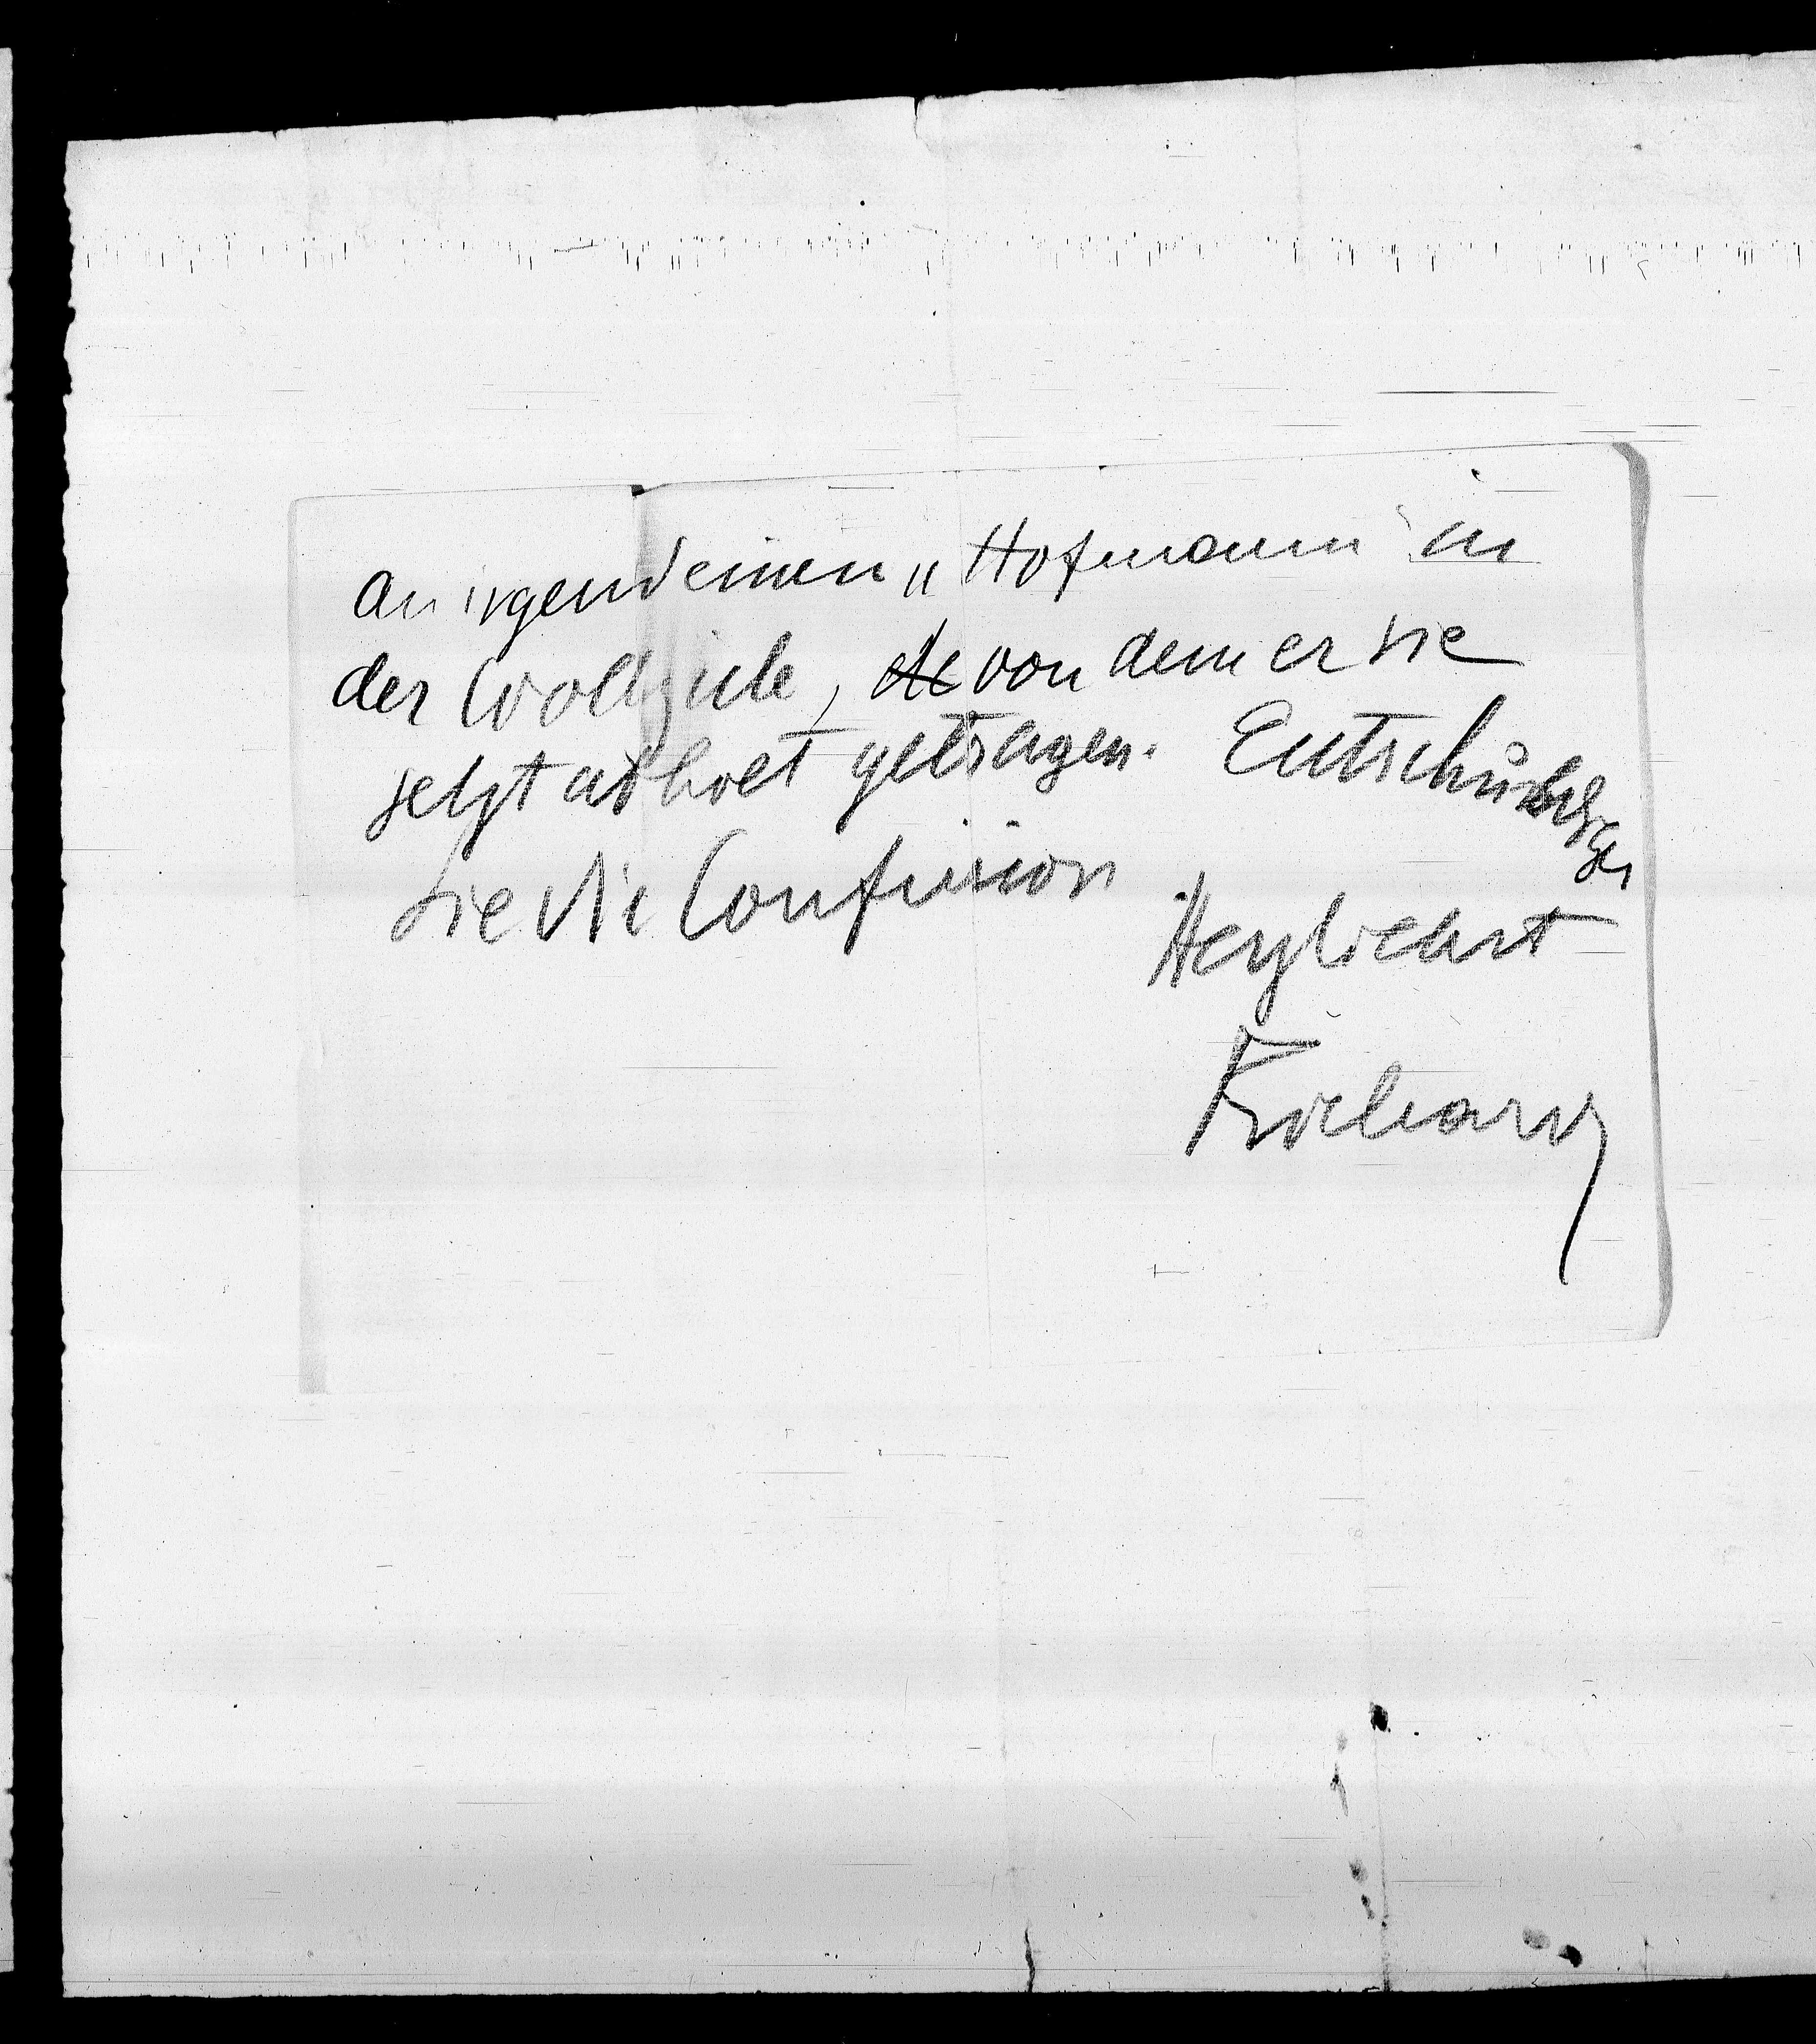 an irgendeinen „Hofmann“ in
der Wollzeile, die von dem er sie
jetzt abholt getragen. Entschuldigen
Sie die Confusion
Herzlichst
Richard